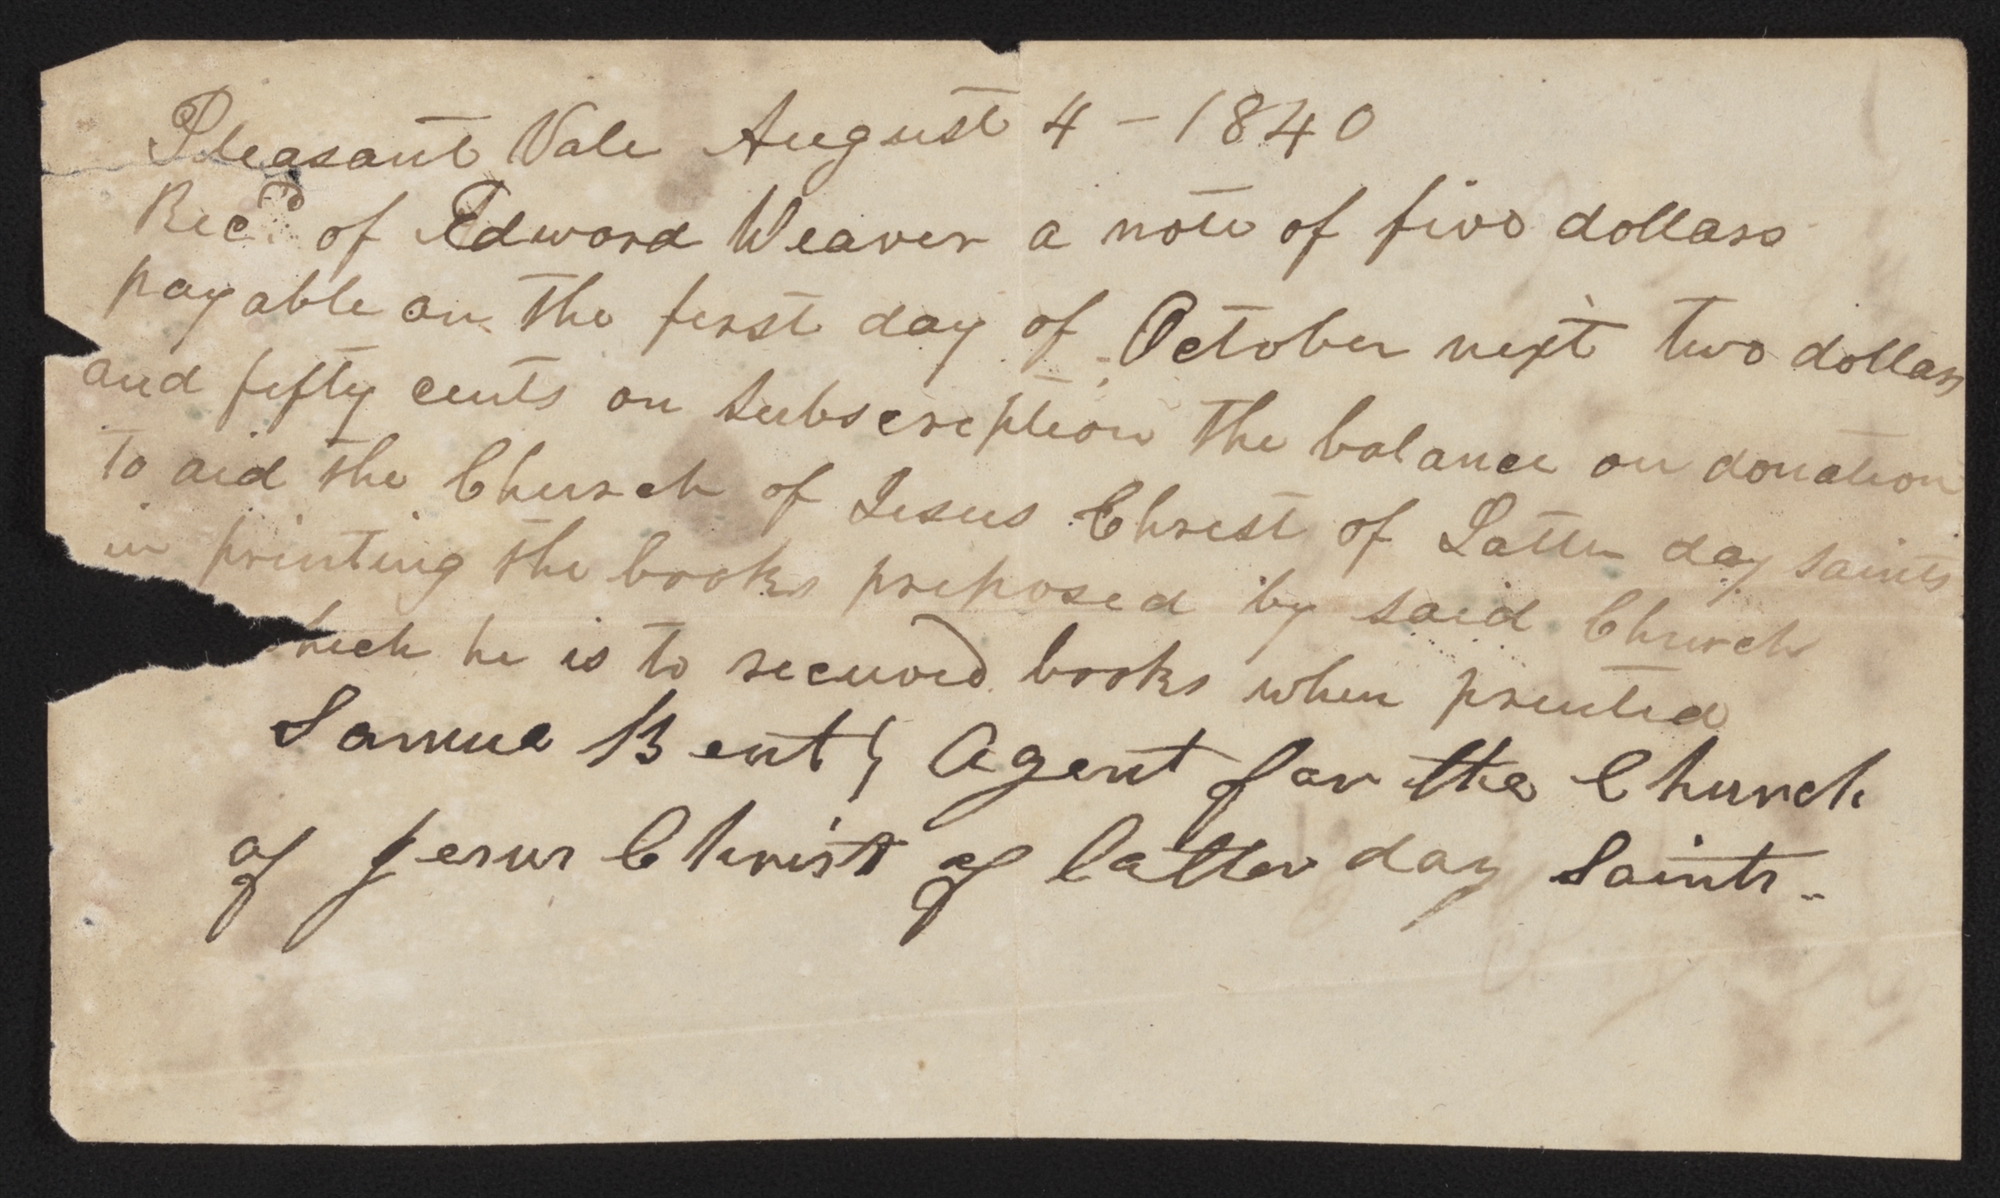 Pleasant Vale August 4 - 1840
Rec.d of Edward Weaver a note of five dollars
payable on the first day of October next two dollars
and fifty cents on subscription the balance on donation
to aid the Church of Jesus Christ of Latter day saints
in printing the books proposed by said Church
hich he is to receive books when printed
Samuel Bent, Agent for the Church
of Jesus Christ of latter day Saints..